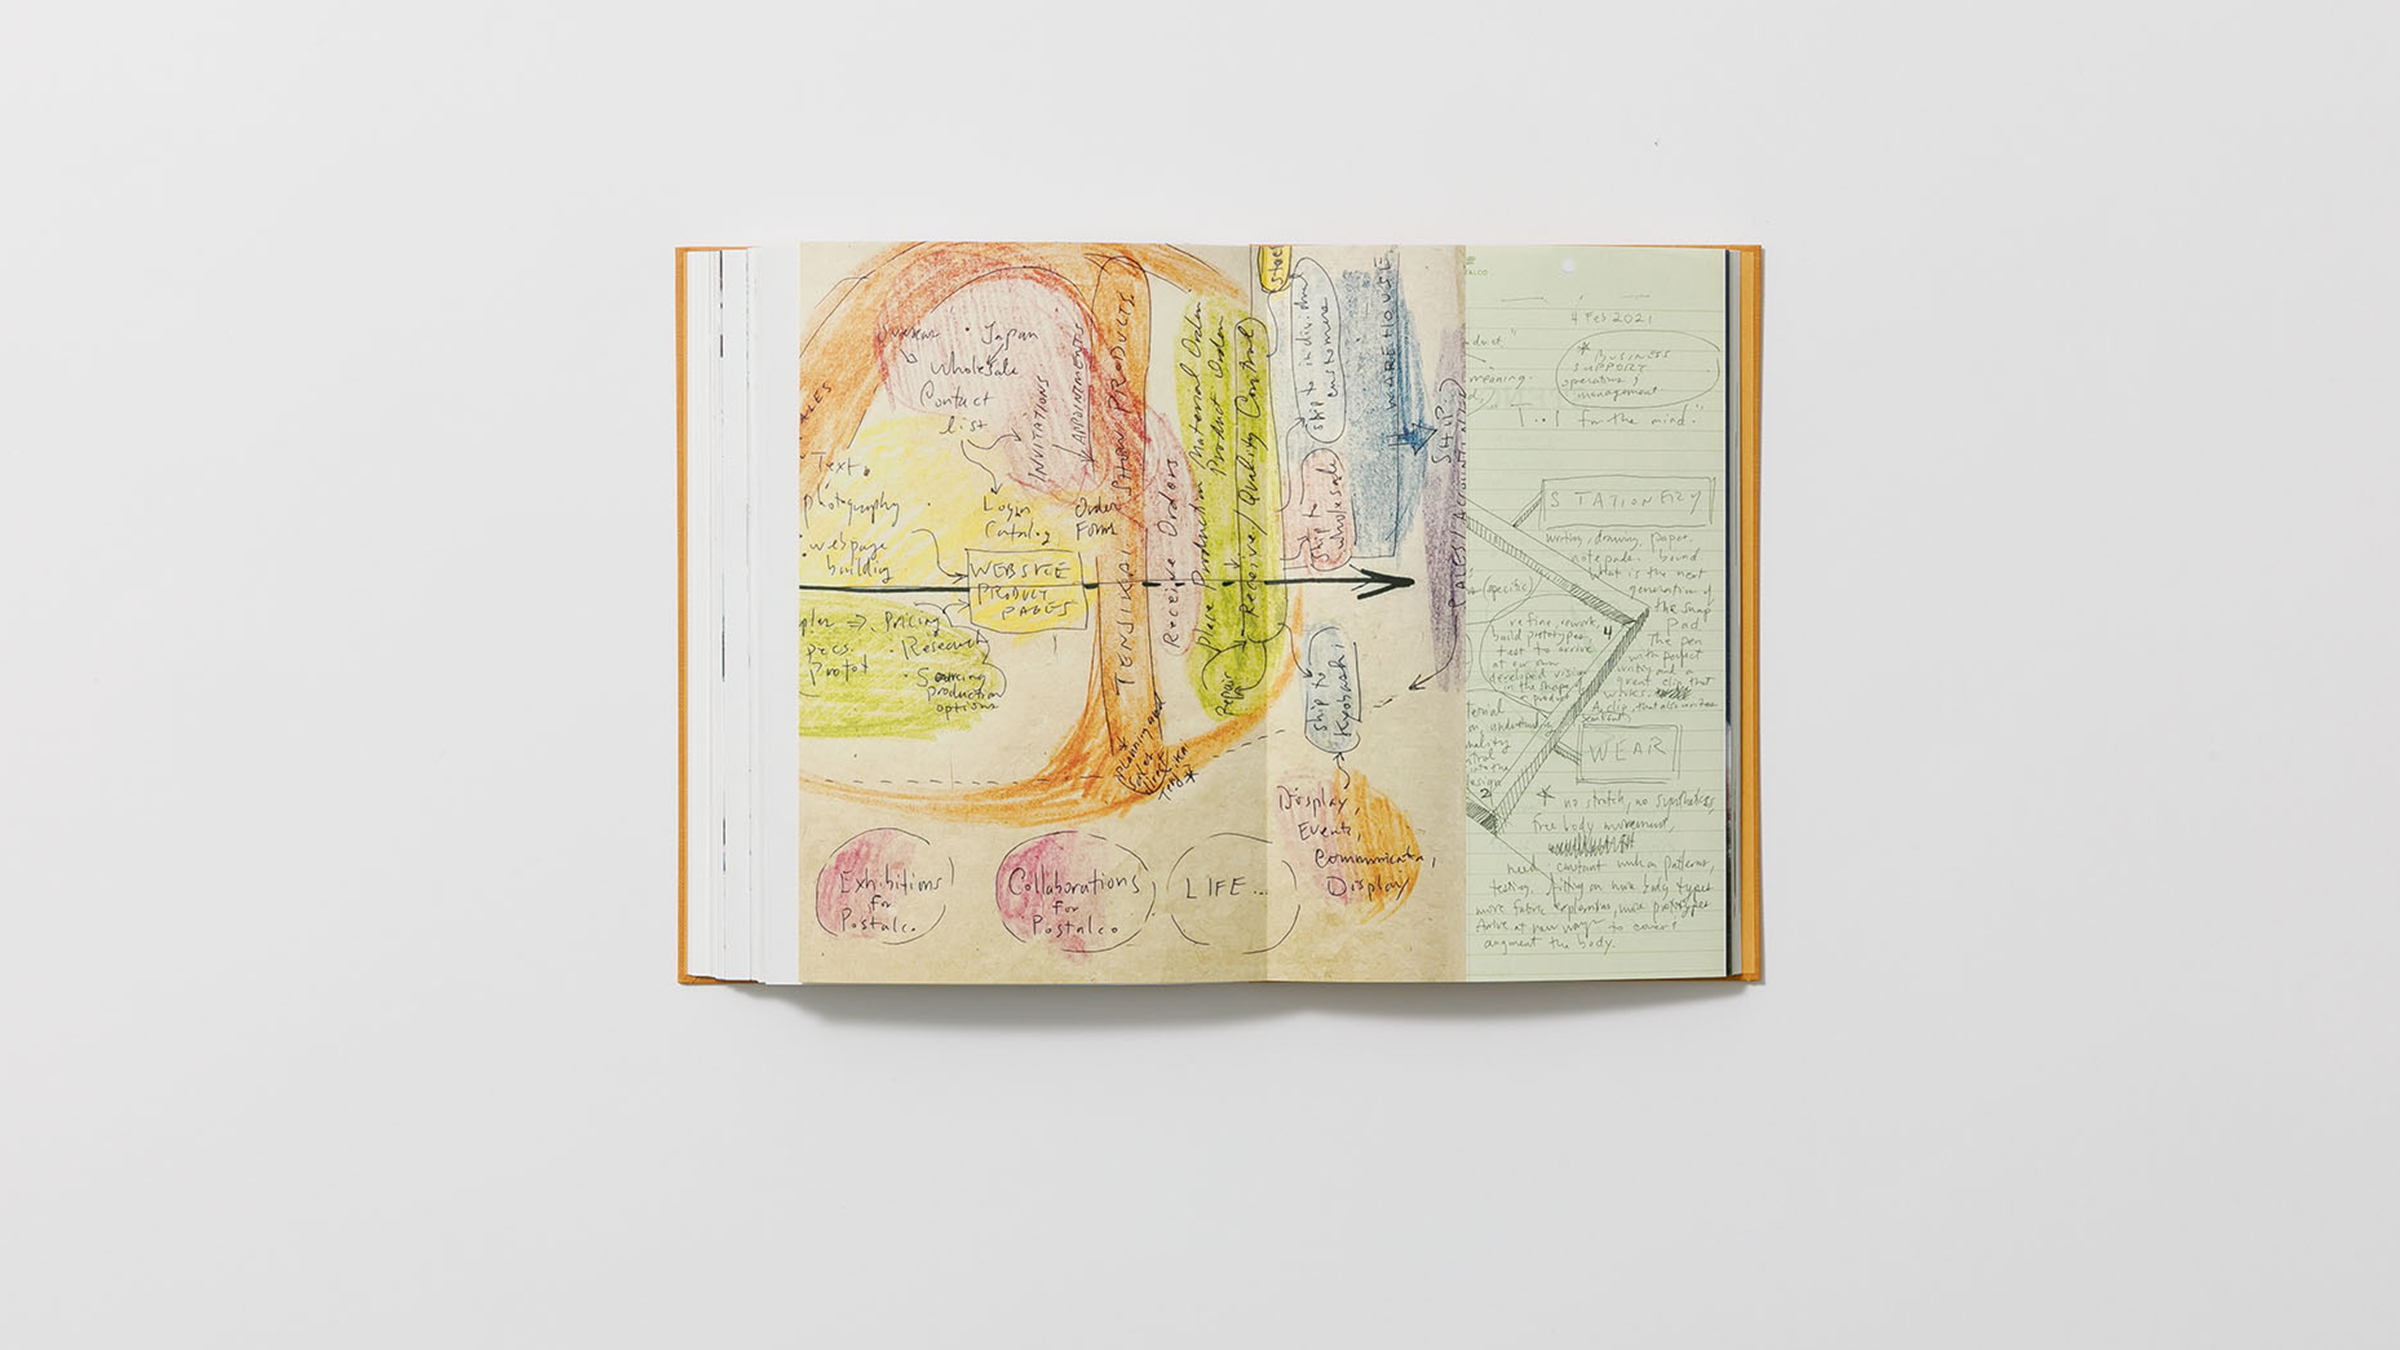 Japan
Wholesale
Contact
list
INVITATIONS
APPOINTMENTS
TENJIKAI SHOW PRODUCTS
Text
photography
webpage
building
Login
Catalog
Order
Forms
WEBSITE
PRODUCT
PAGES
Pricing
Research
Sourcing
production
options
Receive Orders
Place Production Material Order
Product Order
Receive / Quality Control
Repair
ship to individual
customers
WAREHOUSE
ship to
wholesale
SHIP
ship to
Kyobashi
Planning and
Tenjikai
Display,
Events,
Display
Exhibitions
for
Postalco
Collaborations
for
Postalco
LIFE...
4 Feb 2021
BUSINESS
SUPPORT
operations &
management
meaning.
for the mind."
STATIONERY
writing, drawing, paper.
notepads. bound
What is the next
generation of
the snap
pad
The pen
with perfect
writing and a
great clip that
works.
A clip, that also writes
(specific)
refine, rework,
build prototypes,
test to arrive
at our own
developed vision
in the shape of
a product
4
2
WEAR
* no stretch, no synthetics,
free body movement,
need constant work on patterns,
testing, fitting on more body types
more fabric explorations, more prototypes
Arrive at new ways to cover &
augment the body.